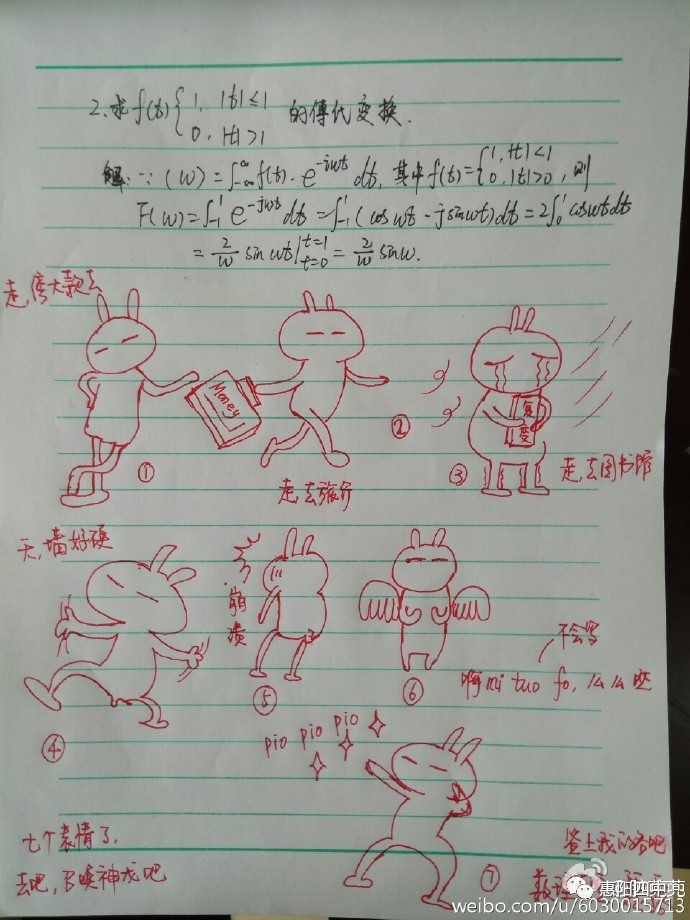 2.求f(t){1, |t|≤1
0, |t|>1 的傅代变换.
解:∵(w)=∫-∞^∞ f(t)·e^-jwt dt, 其中f(t)={1, |t|<1
0, |t|>0, 则
F(w)=∫-1^1 e^-jwt dt=∫-1^1(cos wt-jsinwt)dt=2∫0^1 coswtdt
=2/w sin wt|t=1 t=0=2/w sinw.
走,傍大款去
Money
①
②
走,去旅行
复
变
③
走,去图书馆
天,墙好硬
④
崩溃
⑤
⑥
不会写
啊mi tuo fo,么么哒
pio pio pio
七个表情了,
去吧,召唤神龙吧
⑦
惠阳四茕茕
weibo.com/u/6030015713